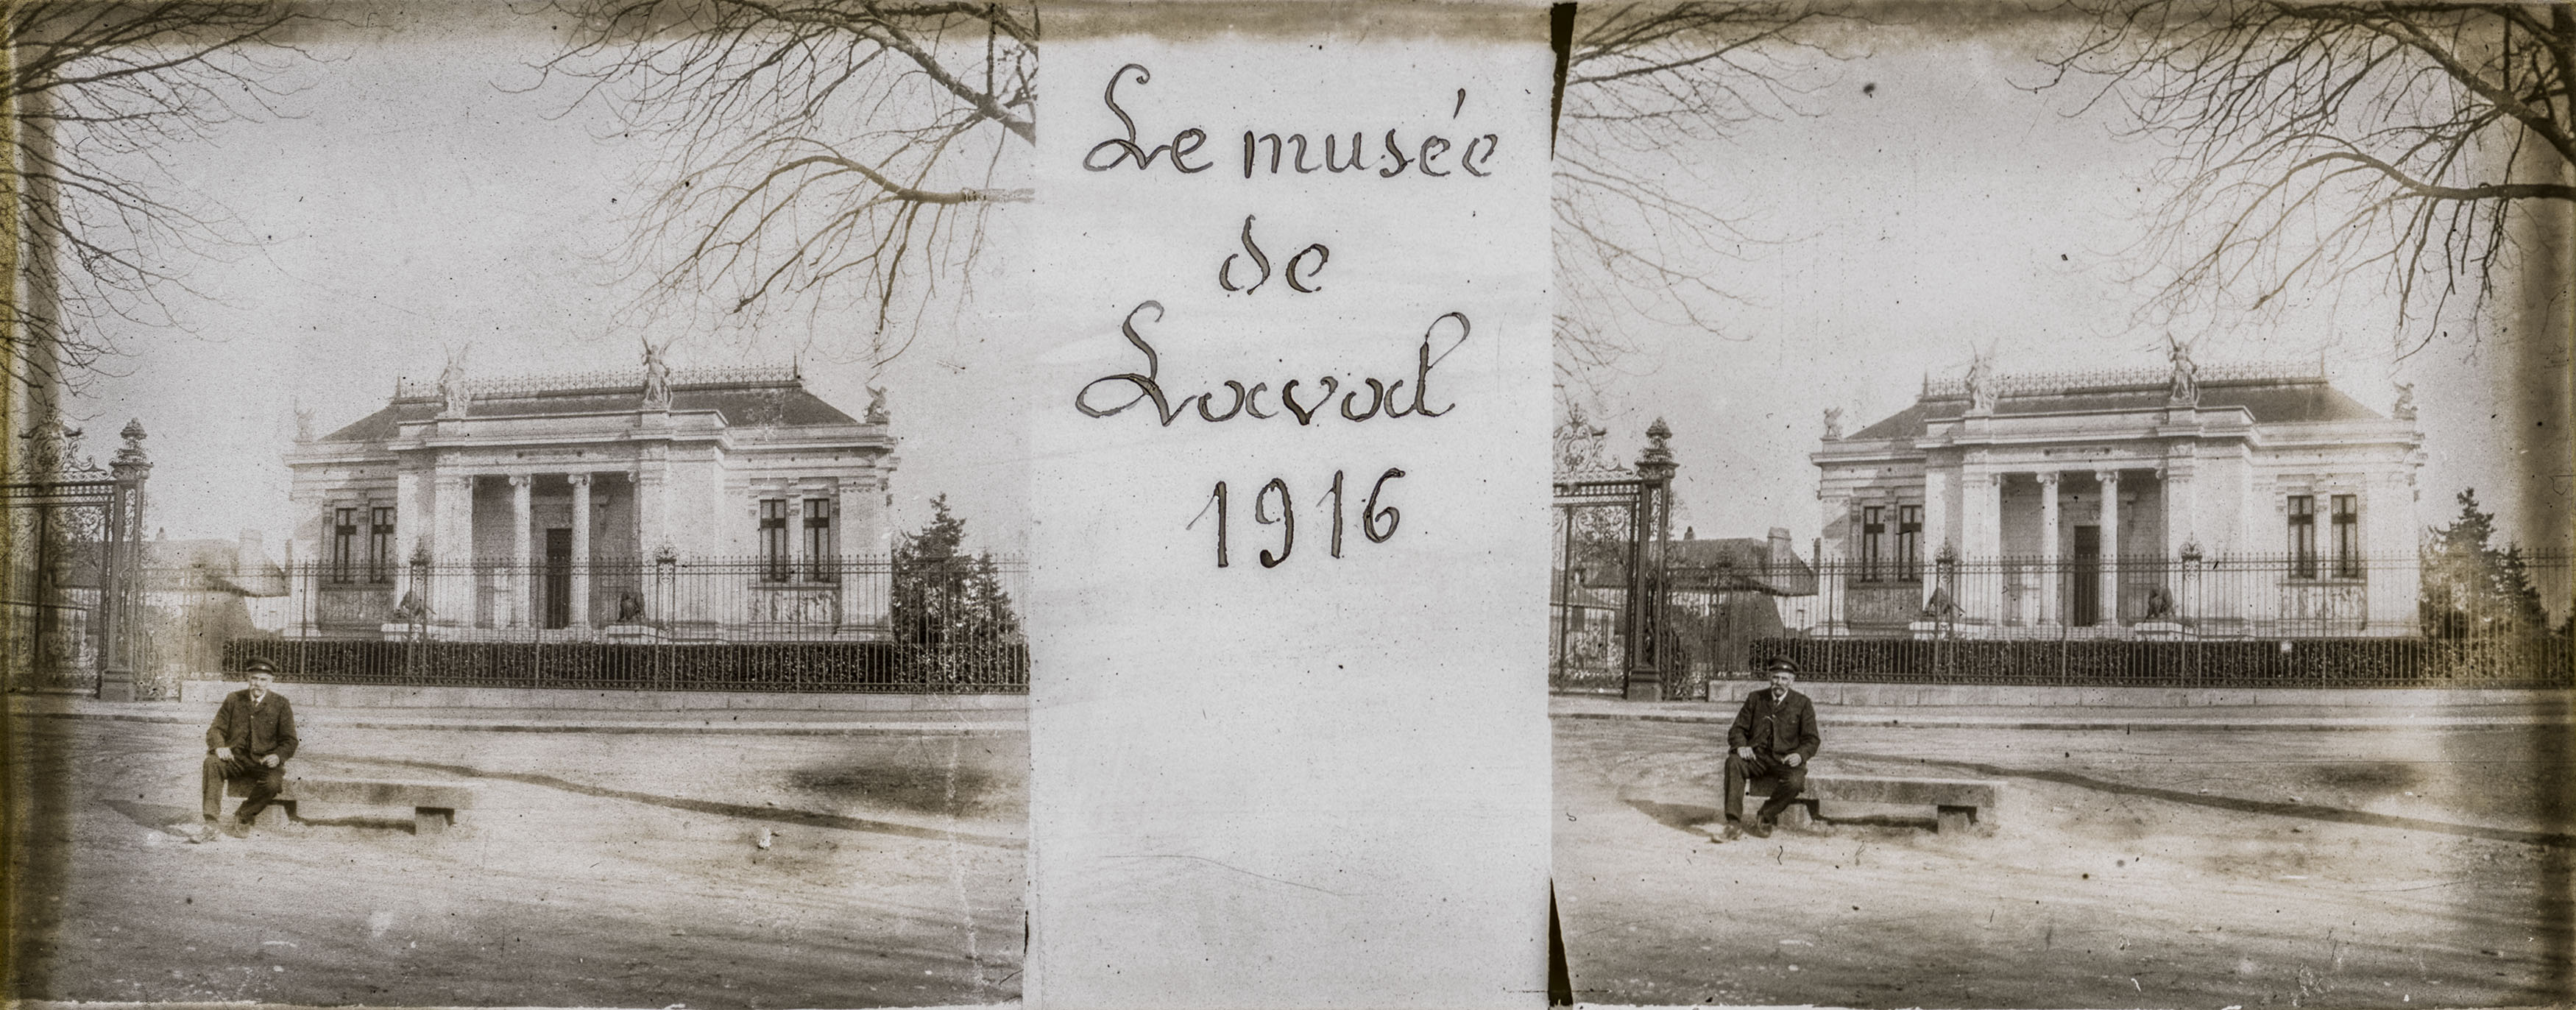 Le musée
de
Laval
1916